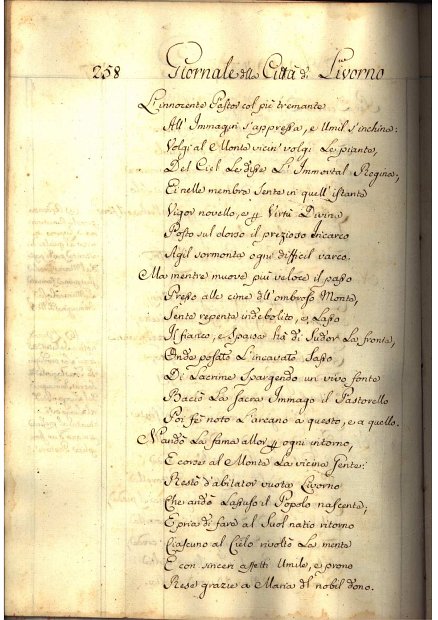 258 Giornale della Città di Livorno
L'innocente Pastor col piè tremante
All' Immagin s'appressa, e Umil s'inchina:
Volgi al Monte vicin' volgi Le piante,
Del Ciel Le disse L' Immortal Regina,
Ei nelle membra sente in quell' istante
Vigor novello, e p Virtù Divina
Posto sul dorso il prezioso Incarco
Agil sormonta ogni difficil varco.
Ma mentre muove più veloce il passo
Presso alle cime dell' ombroso Monte,
Sente repente indebolito, e Lasso
Il fianco, e sparsa hà di Sudor La fronte,
Onde posato L'incavato Sasso
Di Lacrime Spargendo un' vivo fonte
Baciò La Sacra Immago il Pastorello
Poi fè noto L'arcano a questo, e a quello.
N'andò La fama allor p ogni intorno,
E corse al Monte La vicina Gente:
Restò d'abitator vuoto Livorno
Che andò Lassuso il Popolo nascente,
E pria di fare al Suol natio ritorno
Ciascuno al Cielo rivoltò La mente
E con sinceri affetti Umile, e prono
Rese grazie a Maria del nobil dono.